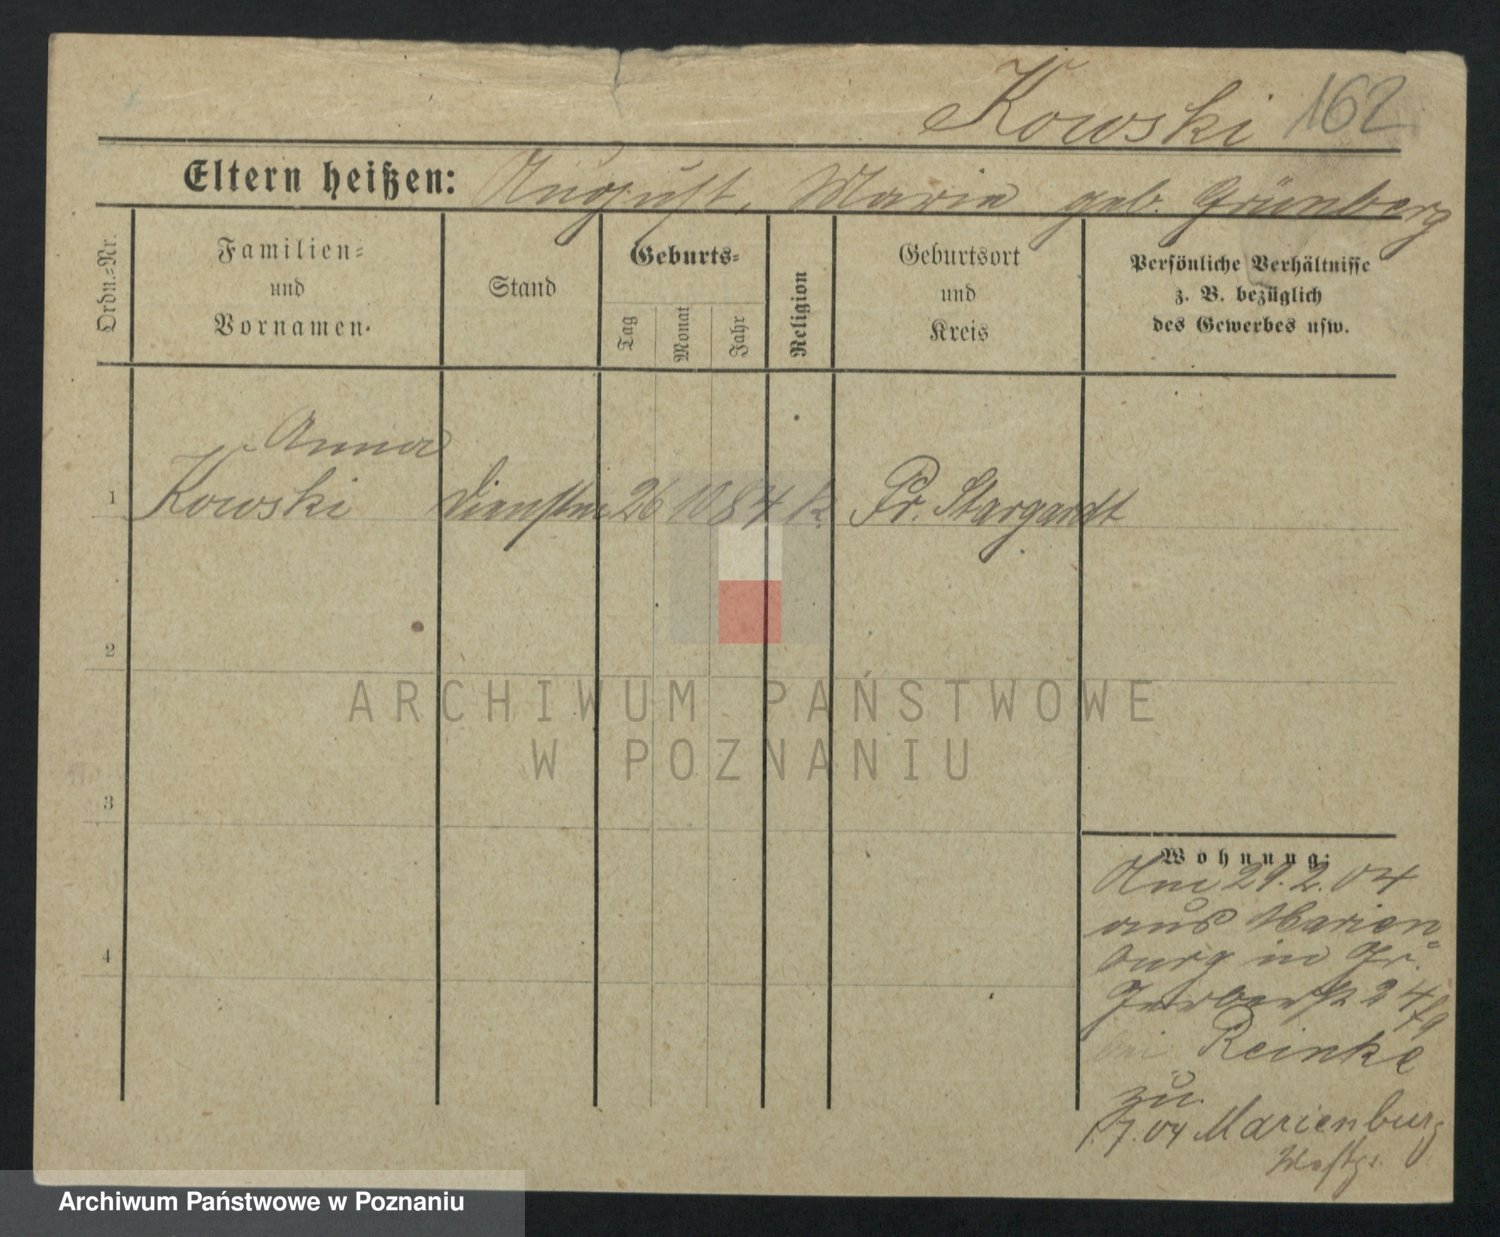 Kowski 162
Eltern heißen: August, Marie geb. Grünberg
Ordn.=Nr.
Familien=
und
Vornamen.
Stand
Geburts=
Tag
Monat
Jahr
Religion
Geburtsort
und
Kreis
Persönliche Verhältnisse
z. B. bezüglich
des Gewerbes usw.
Anna
1 Kowski 26 10 84 k. Pr. Stargardt
2
3
4
Wohnung:
Am 29.2.04
aus Marien
burg in Gr.
Gerberst 24
bei Reinke
zu.
1.7.04 Marienburg
Westpr.
ARCHIWUM PAŃSTWOWE
W POZNANIU
Archiwum Państwowe w Poznaniu